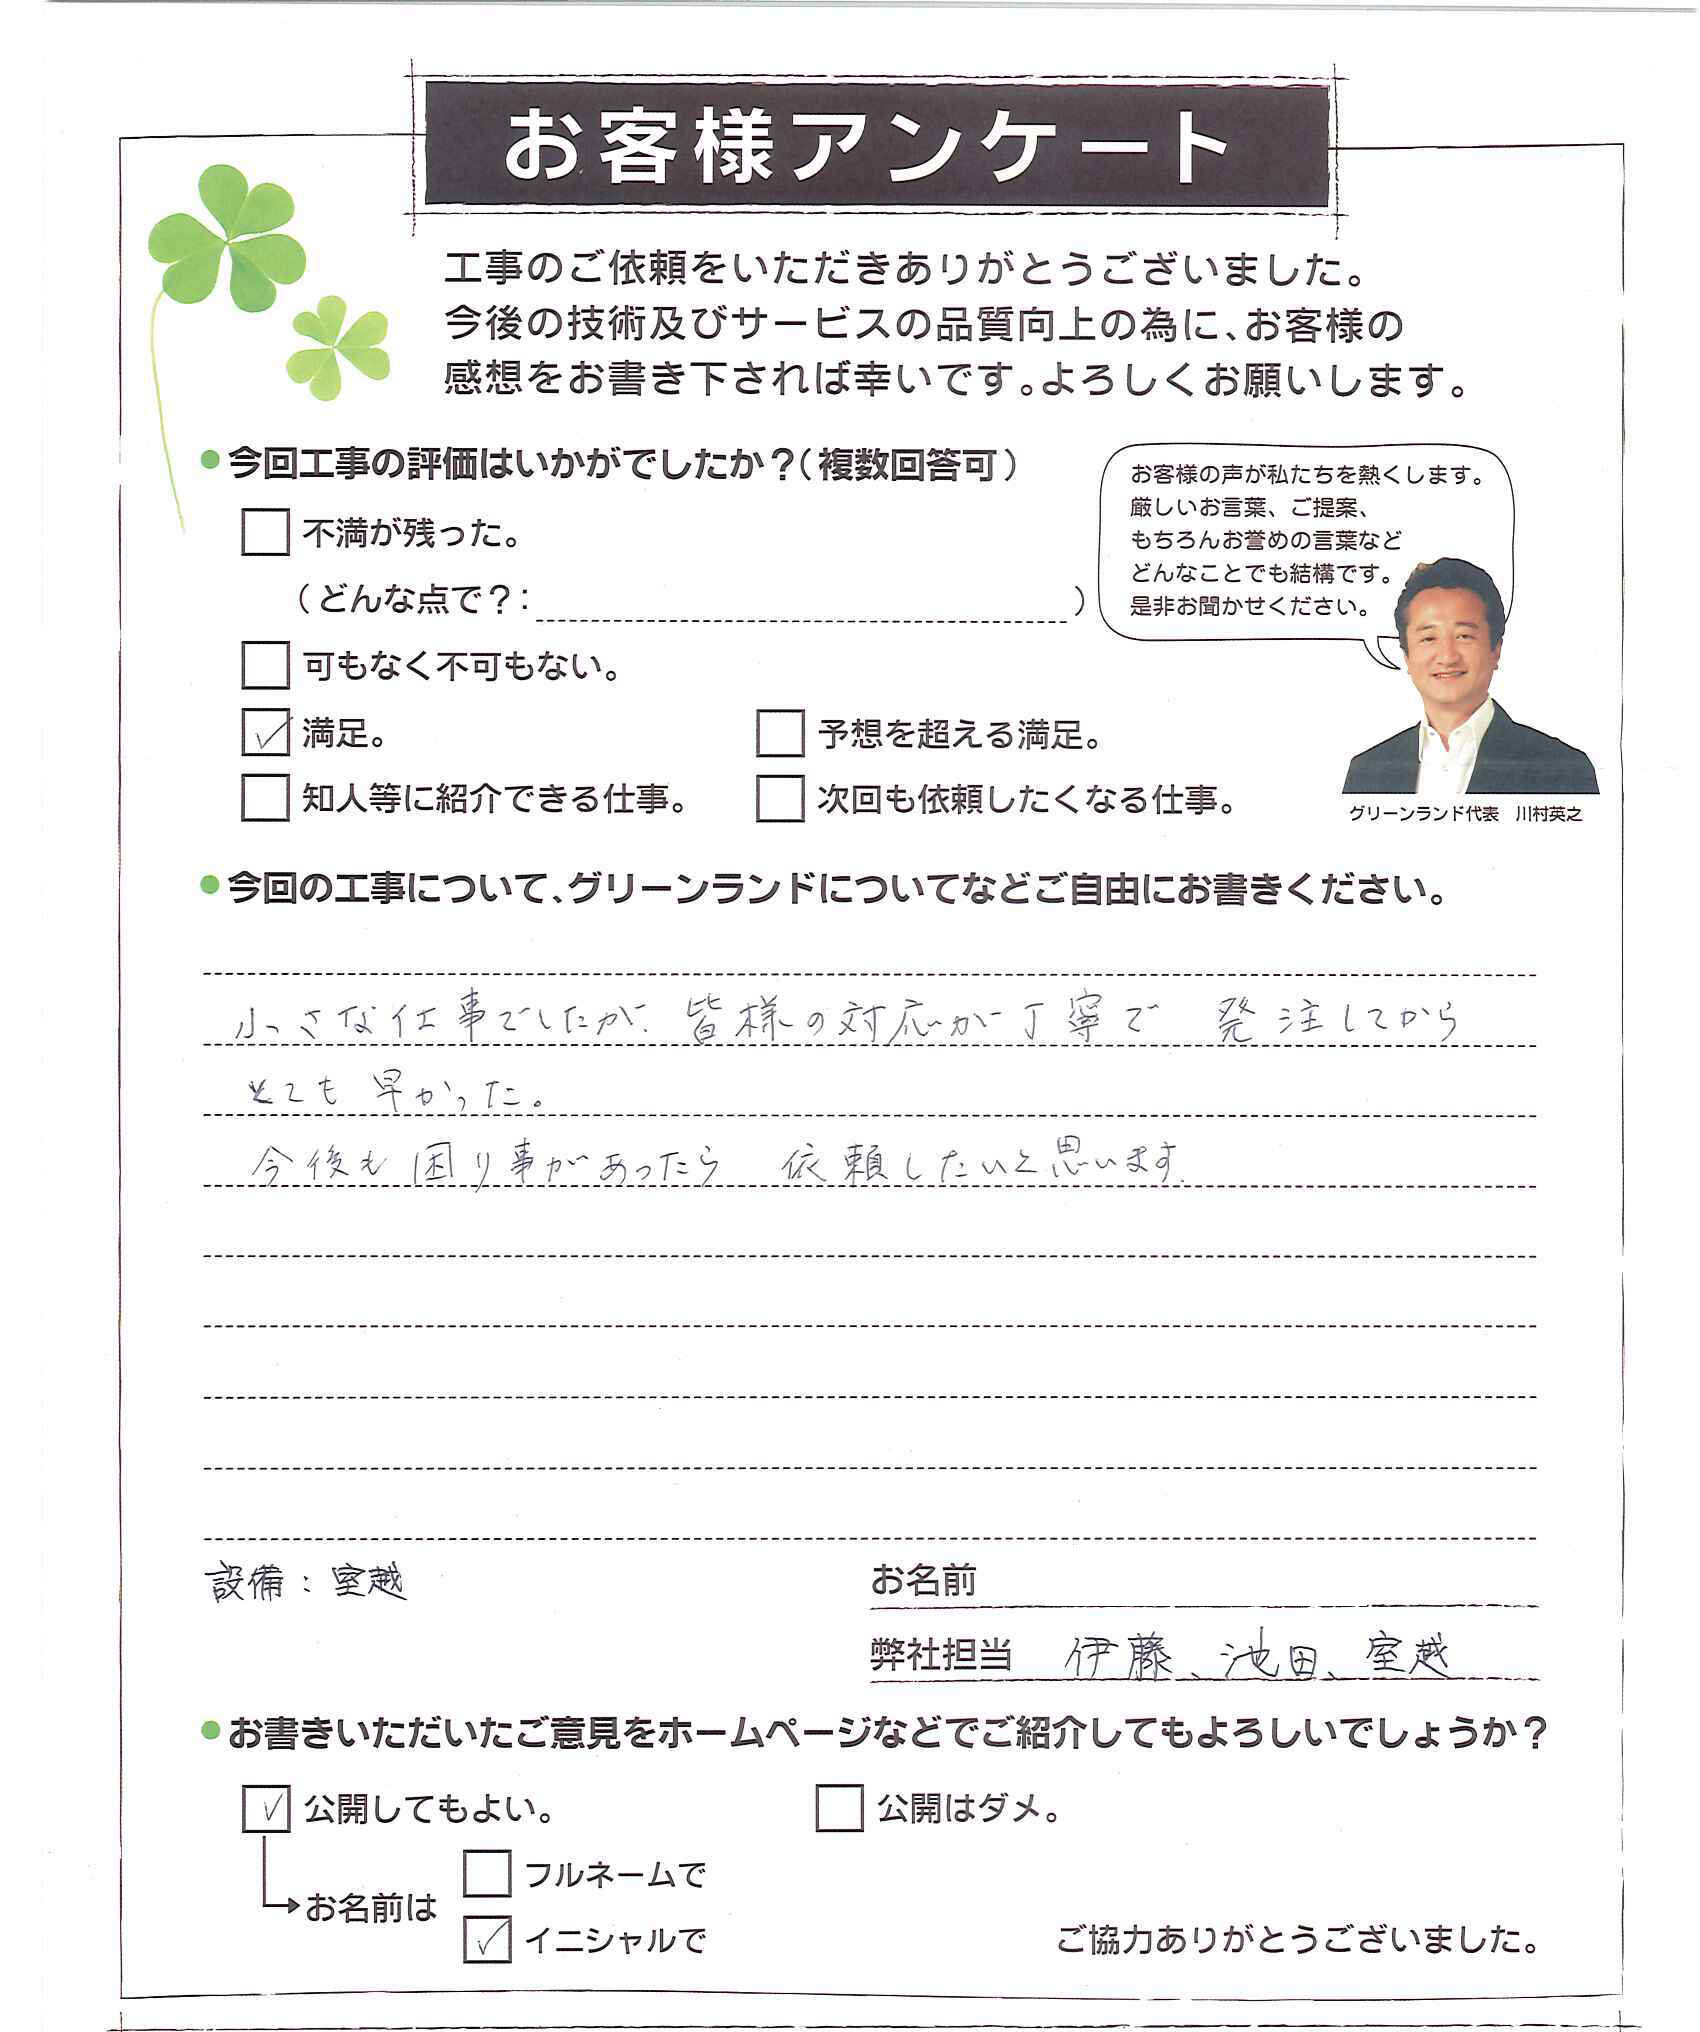 お客様アンケート
工事のご依頼をいただきありがとうございました。
今後の技術及びサービスの品質向上の為に、お客様の
感想をお書き下されば幸いです。よろしくお願いします。
●今回工事の評価はいかがでしたか？（複数回答可）
お客様の声が私たちを熱くします。
厳しいお言葉、ご提案、
もちろんお誉めの言葉など
どんなことでも結構です。
是非お聞かせください。
不満が残った。
（どんな点で？：　）
可もなく不可もない。
満足。　予想を超える満足。
知人等に紹介できる仕事。　次回も依頼したくなる仕事。
グリーンランド代表　川村英之
●今回の工事について、グリーンランドについてなどご自由にお書きください。
小さな仕事でしたが、皆様の対応が丁寧で　発注してから
とても早かった。
今後も困り事があったら　依頼したいと思います。
設備：室越　お名前
弊社担当　伊藤、池田、室越
●お書きいただいたご意見をホームページなどでご紹介してもよろしいでしょうか？
公開してもよい。　公開はダメ。
フルネームで
お名前は
イニシャルで　ご協力ありがとうございました。